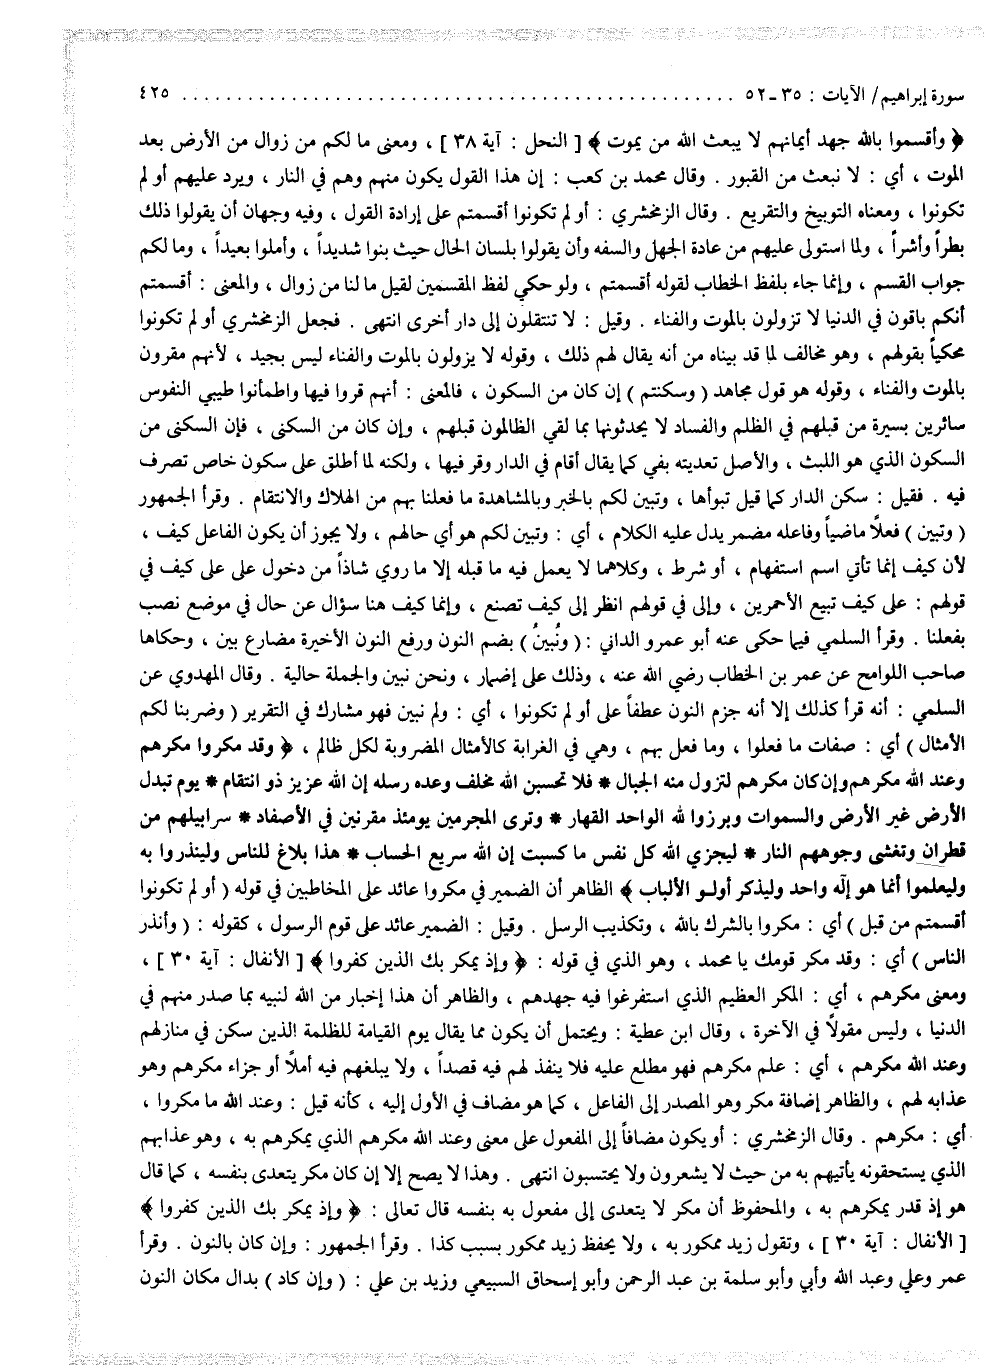 سورة إبراهيم/ الآيات : ٣٥ـ٥٢ .................................................... ٤٢٥
﴿ وأقسموا بالله جهد أيمانهم لا يبعث الله من يموت ﴾ [ النحل : آية ٣٨ ] ، ومعنى ما لكم من زوال من الأرض بعد
الموت ، أي : لا نبعث من القبور . وقال محمد بن كعب : إن هذا القول يكون منهم وهم في النار ، ويرد عليهم أو لم
تكونوا ، ومعناه التوبيخ والتقريع . وقال الزمخشري : أو لم تكونوا أقسمتم على إرادة القول ، وفيه وجهان أن يقولوا ذلك
بطراً وأشراً ، ولما استولى عليهم من عادة الجهل والسفه وأن يقولوا بلسان الحال حيث بنوا شديداً ، وأملوا بعيداً ، وما لكم
جواب القسم ، وإنما جاء بلفظ الخطاب لقوله أقسمتم ، ولو حكي لفظ المقسمين لقيل ما لنا من زوال ، والمعنى : أقسمتم
أنكم باقون في الدنيا لا تزولون بالموت والفناء . وقيل : لا تنتقلون إلى دار أخرى انتهى . فجعل الزمخشري أو لم تكونوا
محكياً بقولهم ، وهو مخالف لما قد بيناه من أنه يقال لهم ذلك ، وقوله لا يزولون بالموت والفناء ليس بجيد ، لأنهم مقرون
بالموت والفناء ، وقوله هو قول مجاهد ( وسكنتم ) إن كان من السكون ، فالمعنى : أنهم قروا فيها واطمأنوا طيبي النفوس
سائرين بسيرة من قبلهم في الظلم والفساد لا يحدثونها بما لقي الظالمون قبلهم ، وإن كان من السكنى ، فإن السكنى من
السكون الذي هو اللبث ، والأصل تعديته بفي كما يقال أقام في الدار وقر فيها ، ولكنه لما أطلق على سكون خاص تصرف
فيه . فقيل : سكن الدار كما قيل تبوأها ، وتبين لكم بالخبر وبالمشاهدة ما فعلنا بهم من الهلاك والانتقام . وقرأ الجمهور
( وتبين ) فعلاً ماضياً وفاعله مضمر يدل عليه الكلام ، أي : وتبين لكم هو أي حالهم ، ولا يجوز أن يكون الفاعل كيف ،
لأن كيف إنما تأتي اسم استفهام ، أو شرط ، وكلاهما لا يعمل فيه ما قبله إلا ما روي شاذاً من دخول على على كيف في
قولهم : على كيف تبيع الأحمرين ، وإلى في قولهم انظر إلى كيف تصنع ، وإنما كيف هنا سؤال عن حال في موضع نصب
بفعلنا . وقرأ السلمي فيما حكى عنه أبو عمرو الداني : ( ونُبينُ ) بضم النون ورفع النون الأخيرة مضارع بين ، وحكاها
صاحب اللوامح عن عمر بن الخطاب رضي الله عنه ، وذلك على إضمار ، ونحن نبين والجملة حالية . وقال المهدوي عن
السلمي : أنه قرأ كذلك إلا أنه جزم النون عطفاً على أو لم تكونوا ، أي : ولم نبين فهو مشارك في التقرير ( وضربنا لكم
الأمثال ) أي : صفات ما فعلوا ، وما فعل بهم ، وهي في الغرابة كالأمثال المضروبة لكل ظالم ، ﴿ وقد مكروا مكرهم
وعند الله مكرهم وإن كان مكرهم لتزول منه الجبال * فلا تحسبن الله مخلف وعده رسله إن الله عزيز ذو انتقام * يوم تبدل
الأرض غير الأرض والسموات وبرزوا لله الواحد القهار * وترى المجرمين يومئذ مقرنين في الأصفاد * سرابيلهم من
قطران وتغشى وجوههم النار * ليجزي الله كل نفس ما كسبت إن الله سريع الحساب * هذا بلاغ للناس ولينذروا به
وليعلموا أنما هو إلٰه واحد وليذكر أولو الألباب ﴾ الظاهر أن الضمير في مكروا عائد على المخاطبين في قوله ( أو لم تكونوا
أقسمتم من قبل ) أي : مكروا بالشرك بالله ، وتكذيب الرسل . وقيل : الضمير عائد على قوم الرسول ، كقوله : ( وأنذر
الناس ) أي : وقد مكر قومك يا محمد ، وهو الذي في قوله : ﴿ وإذ يمكر بك الذين كفروا ﴾ [ الأنفال : آية ٣٠ ] ،
ومعنى مكرهم ، أي : المكر العظيم الذي استفرغوا فيه جهدهم ، والظاهر أن هذا إخبار من الله لنبيه بما صدر منهم في
الدنيا ، وليس مقولاً في الآخرة ، وقال ابن عطية : ويحتمل أن يكون مما يقال يوم القيامة للظلمة الذين سكن في منازلهم
وعند الله مكرهم ، أي : علم مكرهم فهو مطلع عليه فلا ينفذ لهم فيه قصداً ، ولا يبلغهم فيه أملًا أو جزاء مكرهم وهو
عذابه لهم ، والظاهر إضافة مكر وهو المصدر إلى الفاعل ، كما هو مضاف في الأول إليه ، كأنه قيل : وعند الله ما مكروا ،
أي : مكرهم . وقال الزمخشري : أو يكون مضافاً إلى المفعول على معنى وعند الله مكرهم الذي يمكرهم به ، وهو عذابهم
الذي يستحقونه يأتيهم به من حيث لا يشعرون ولا يحتسبون انتهى . وهذا لا يصح إلا إن كان مكر يتعدى بنفسه ، كما قال
هو إذ قدر يمكرهم به ، والمحفوظ أن مكر لا يتعدى إلى مفعول به بنفسه قال تعالى : ﴿ وإذ يمكر بك الذين كفروا ﴾
[ الأنفال : آية ٣٠ ] ، وتقول زيد ممكور به ، ولا يحفظ زيد ممكور بسبب كذا . وقرأ الجمهور : وإن كان بالنون . وقرأ
عمر وعلي وعبد الله وأبي وأبو سلمة بن عبد الرحمن وأبو إسحاق السبيعي وزيد بن علي : ( وإن كاد ) بدال مكان النون